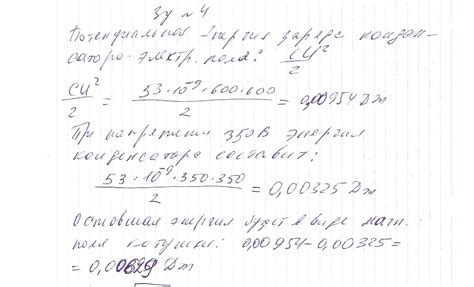 Зу № 4
Потенциальная энергия заряда конден-
сатора электр. поля: CU²/2
CU²/2 = 53·10⁻⁹·600·600/2 = 0,00954 Дж
При напряжении 350В энергия
конденсатора составит:
53·10⁻⁹·350·350/2 = 0,00325 Дж
Оставшая энергия будет в виде магн.
поля катушки: 0,00954-0,00325=
= 0,00629 Дж